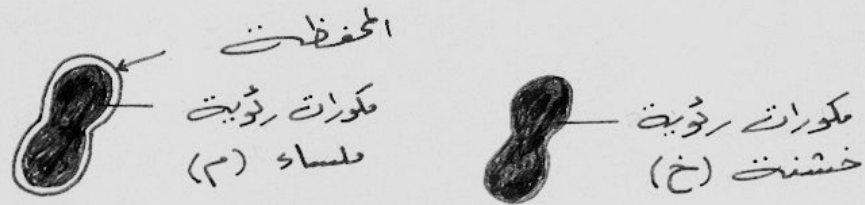 المحفظة
مكورات رئوية
ملساء (م)
مكورات رئوية
خشنة (خ)